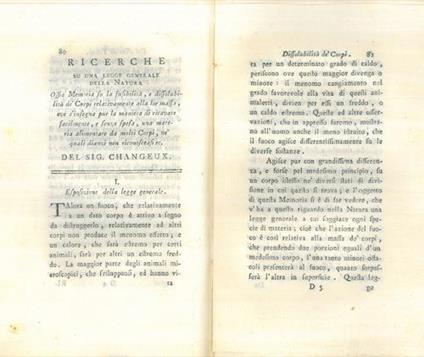 80
RICERCHE
SU UNA LEGGE GENERALE
DELLA NATURA
Ossia Memoria su la fusibilità, e dissolubi-
lità de' Corpi relativamente alla lor massa,
ove s'insegna pur la maniera di ricavare
facilmente, e senza spesa, una mate-
ria alimentare da molti Corpi, ne'
quali dianzi non riconosceasi,
DEL SIG. CHANGEUX.
I.
Esposizione della legge generale.
TAlora un fuoco, che relativamente
a un dato corpo è attivo a segno
da distruggerlo, relativamente ad altri
corpi non produce il menomo effetto; e
un calore, che sarà estremo per certi
animali, sarà per altri un estremo fred-
do. La maggior parte degli animali mi-
croscopici, che sviluppansi, ed hanno vi-
ta
Dissolubilità de' Corpi. 81
ta per un determinato grado di caldo,
periscono ove questo maggior divenga o
minore: il menomo cangiamento nel
grado favorevole alla vita di questi ani-
maletti, divien per essi un freddo, o
un caldo estremo. Queste ed altre osser-
vazioni, che in appresso faremo, mostre-
ranno all'uomo anche il meno istruito, che
il fuoco agisce differentissimamente su le
diverse sostanze.
Agisce pur con grandissima differen-
za, e forse pel medesimo principio, su
un corpo istesso ne' diversi stati di divi-
sione in cui questo si trova; e l'oggetto
di questa Memoria si è di far vedere, che
v'ha a questo riguardo nella Natura una
legge generale a cui soggiace ogni spe-
cie di materia; cioè che l'azione del fuo-
co è così relativa alla massa de' corpi,
che prendendo due porzioni eguali d'un
medesimo corpo, l'una tanto minori osta-
coli presenterà al fuoco, quanto sorpas-
serà l'altra in superficie. Questa leg-
D 5
ge